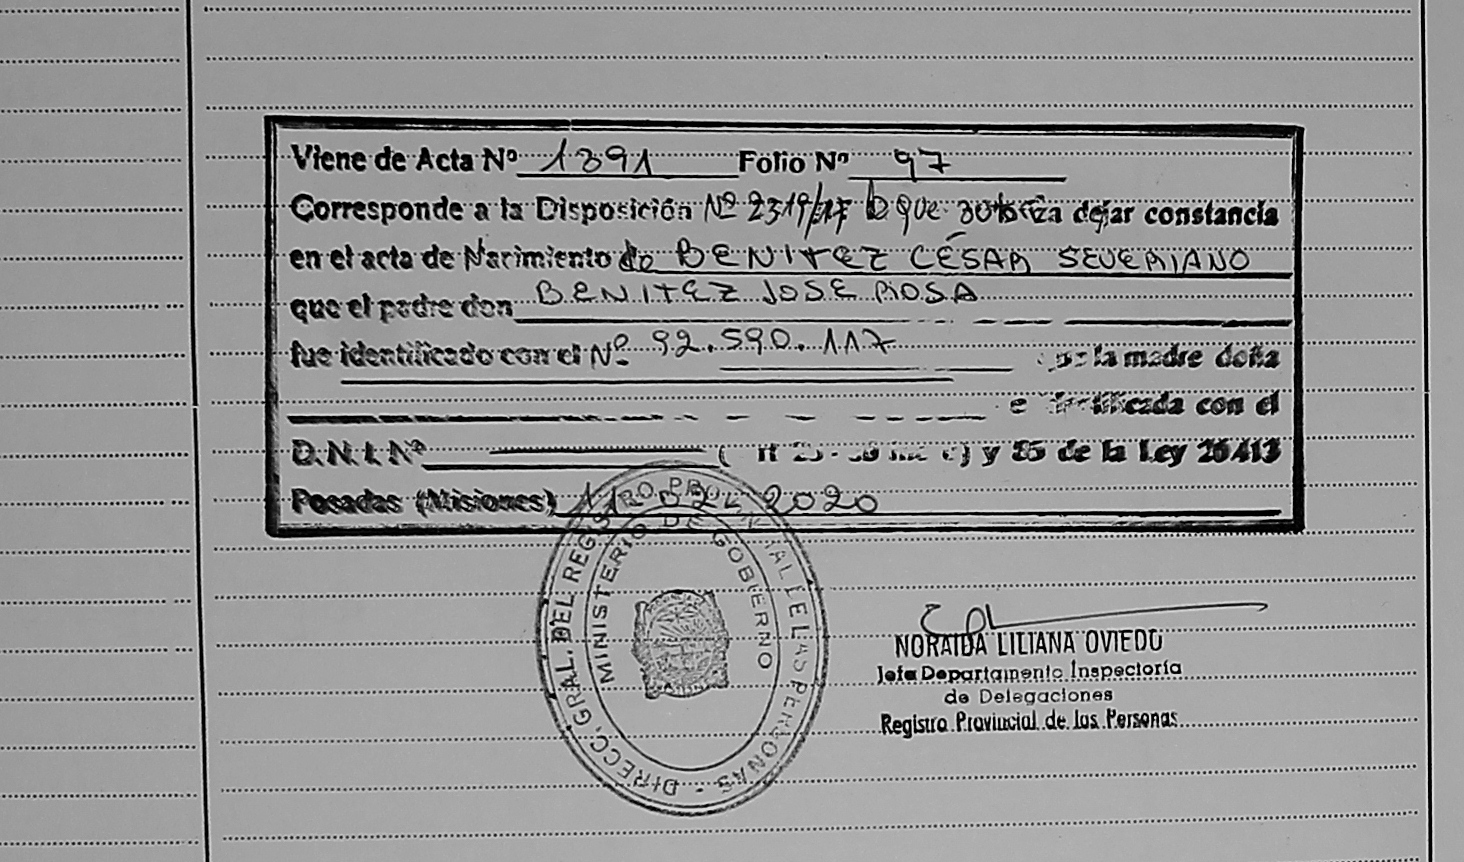 Viene de Acta Nº 1391 Folio Nº 97
Corresponde a la Disposición Nº 2319/17 que autoriza dejar constancia
en el acta de Nacimiento de BENITEZ CÉSAR SEVERIANO
que el padre don BENITEZ JOSE ROSA
fue identificado con el Nº 92.590.117 la madre doña
con el
D.N.I. Nº y 85 de la Ley 26413
Posadas (Misiones) 11 2020
DIRECC. GRAL. DEL REGISTRO PROVINCIAL DE LAS PERSONAS
MINISTERIO DE GOBIERNO
NORAIDA LILIANA OVIEDO
Jefa Departamento Inspectoría
de Delegaciones
Registro Provincial de las Personas